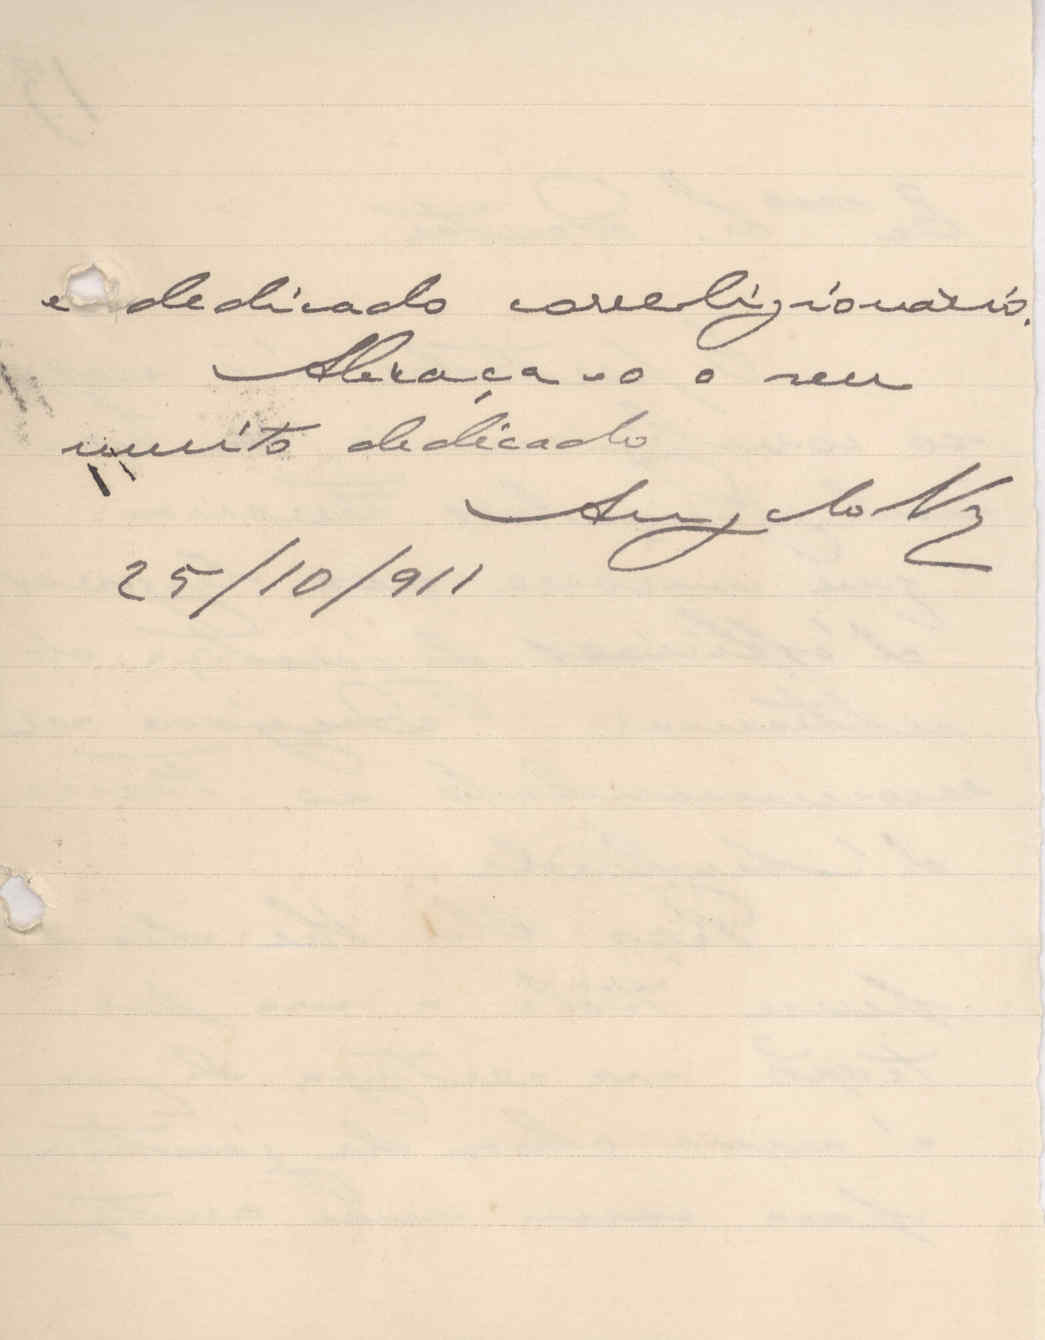 e dedicado correligionário.
Abraça-o o seu
muito dedicado
Angelo Vaz
25/10/911